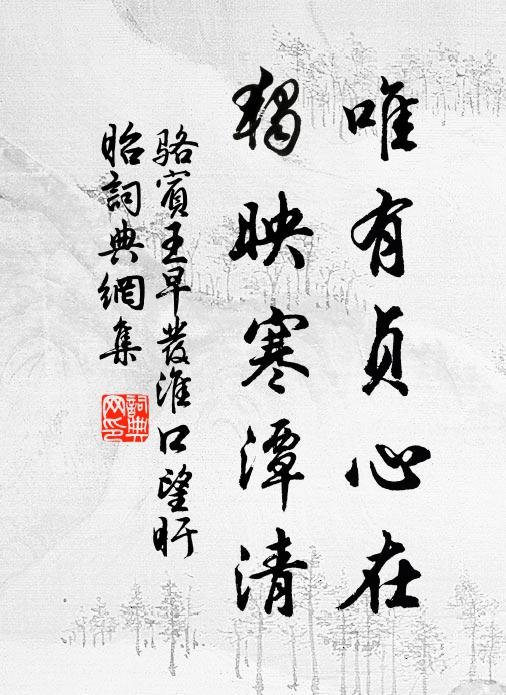 唯有貞心在
獨映寒潭清
駱賓王早發淮口望盱
眙詞典網集
詞典
网印